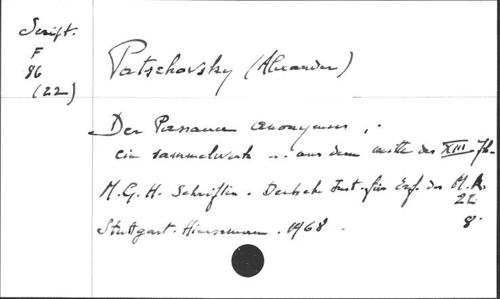 Script.
F
86
(22)
Patschovsky (Alexander)
Der Passauer anonymus ;
ein sammelwerk ... aus dem mitte des XIII Jh.
M.G.H. Schriften. Deutsche Inst. für Erf. des M.A.
22
Stuttgart. Hiersemann. 1968.
8°